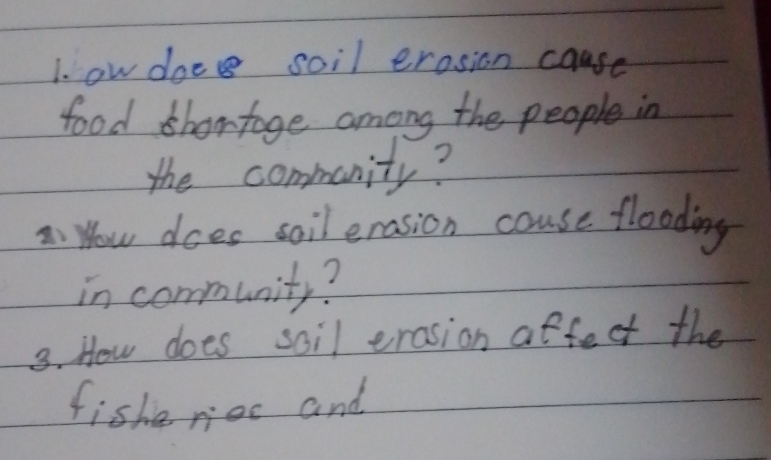 1. ow does soil erosion cause
food shortage among the people in
the community?
2. How does soil erosion cause flooding
in community?
3. How does soil erosion affect the
fisheries and